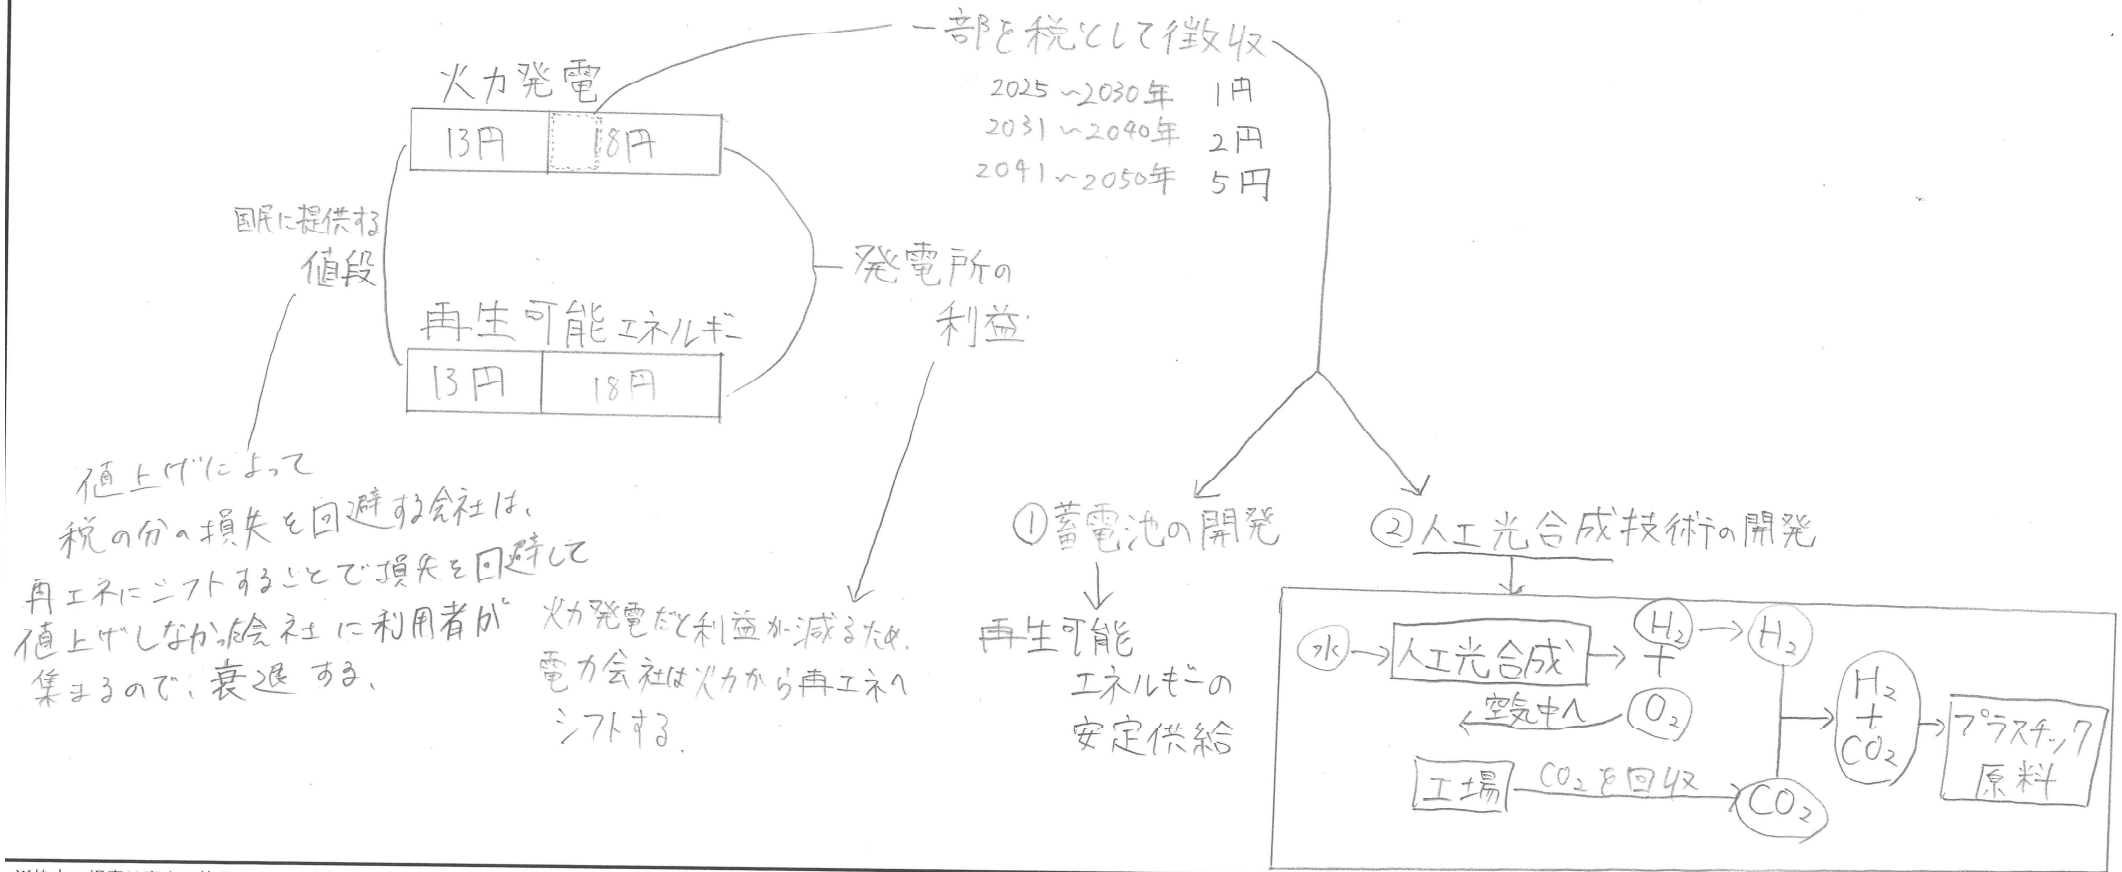 一部を税として徴収
2025〜2030年 1円
2031〜2040年 2円
2041〜2050年 5円
火力発電
13円 18円
国民に提供する
値段
再生可能エネルギー
13円 18円
発電所の
利益
値上げによって
税の分の損失を回避する会社は、
再エネにシフトすることで損失を回避して
値上げしなかった会社に利用者が
集まるので、衰退する、
火力発電だと利益が減るため、
電力会社は火力から再エネへ
シフトする.
①蓄電池の開発
再生可能
エネルギーの
安定供給
②人工光合成技術の開発
水 人工光合成 H₂ + O₂ H₂
空気中へ
工場 CO₂を回収 CO₂
H₂
+
CO₂
プラスチック
原料